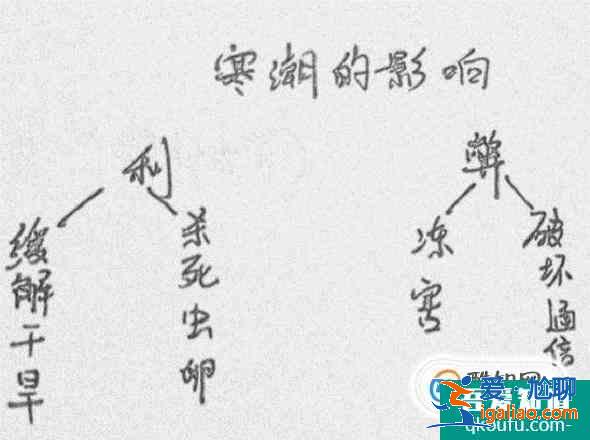 寒潮的影响
利
弊
缓解干旱
杀死虫卵
冻害
破坏通信
酷知网
爱尬聊
igaliao.com
qksufu.com-